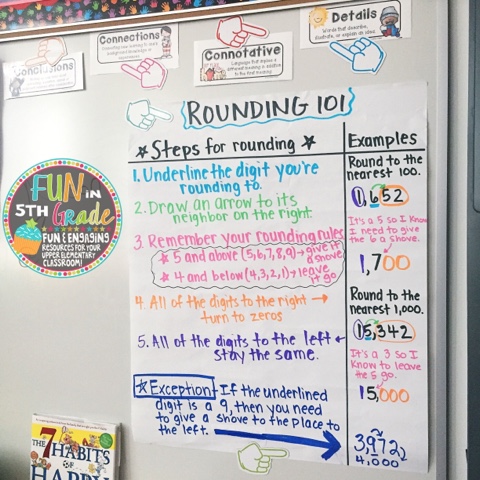 Connections
Details
Words that describe,
illustrate, or explain an idea.
Connotative
Language that implies a
different meaning in addition
to the literal meaning.
Conclusions
ROUNDING 101
★ Steps for rounding ★
1. Underline the digit you're
rounding to.
2. Draw an arrow to its
neighbor on the right.
3. Remember your rounding rules
★ 5 and above (5,6,7,8,9) → give it
a shove
★ 4 and below (4,3,2,1) → leave
it go
4. All of the digits to the right →
turn to zeros
5. All of the digits to the left ←
stay the same.
★ Exception - If the underlined
digit is a 9, then you need
to give a shove to the place to
the left.
Examples
Round to the
nearest 100.
1,652
It's a 5 so I know
I need to give
the 6 a shove.
1,700
Round to the
nearest 1,000.
15,342
It's a 3 so I
know to leave
the 5 go.
15,000
3,972
4,000
FUN in
5TH Grade
FUN & ENGAGING
RESOURCES FOR YOUR
UPPER ELEMENTARY
CLASSROOM!
THE
7 HABITS
OF
HAPPY